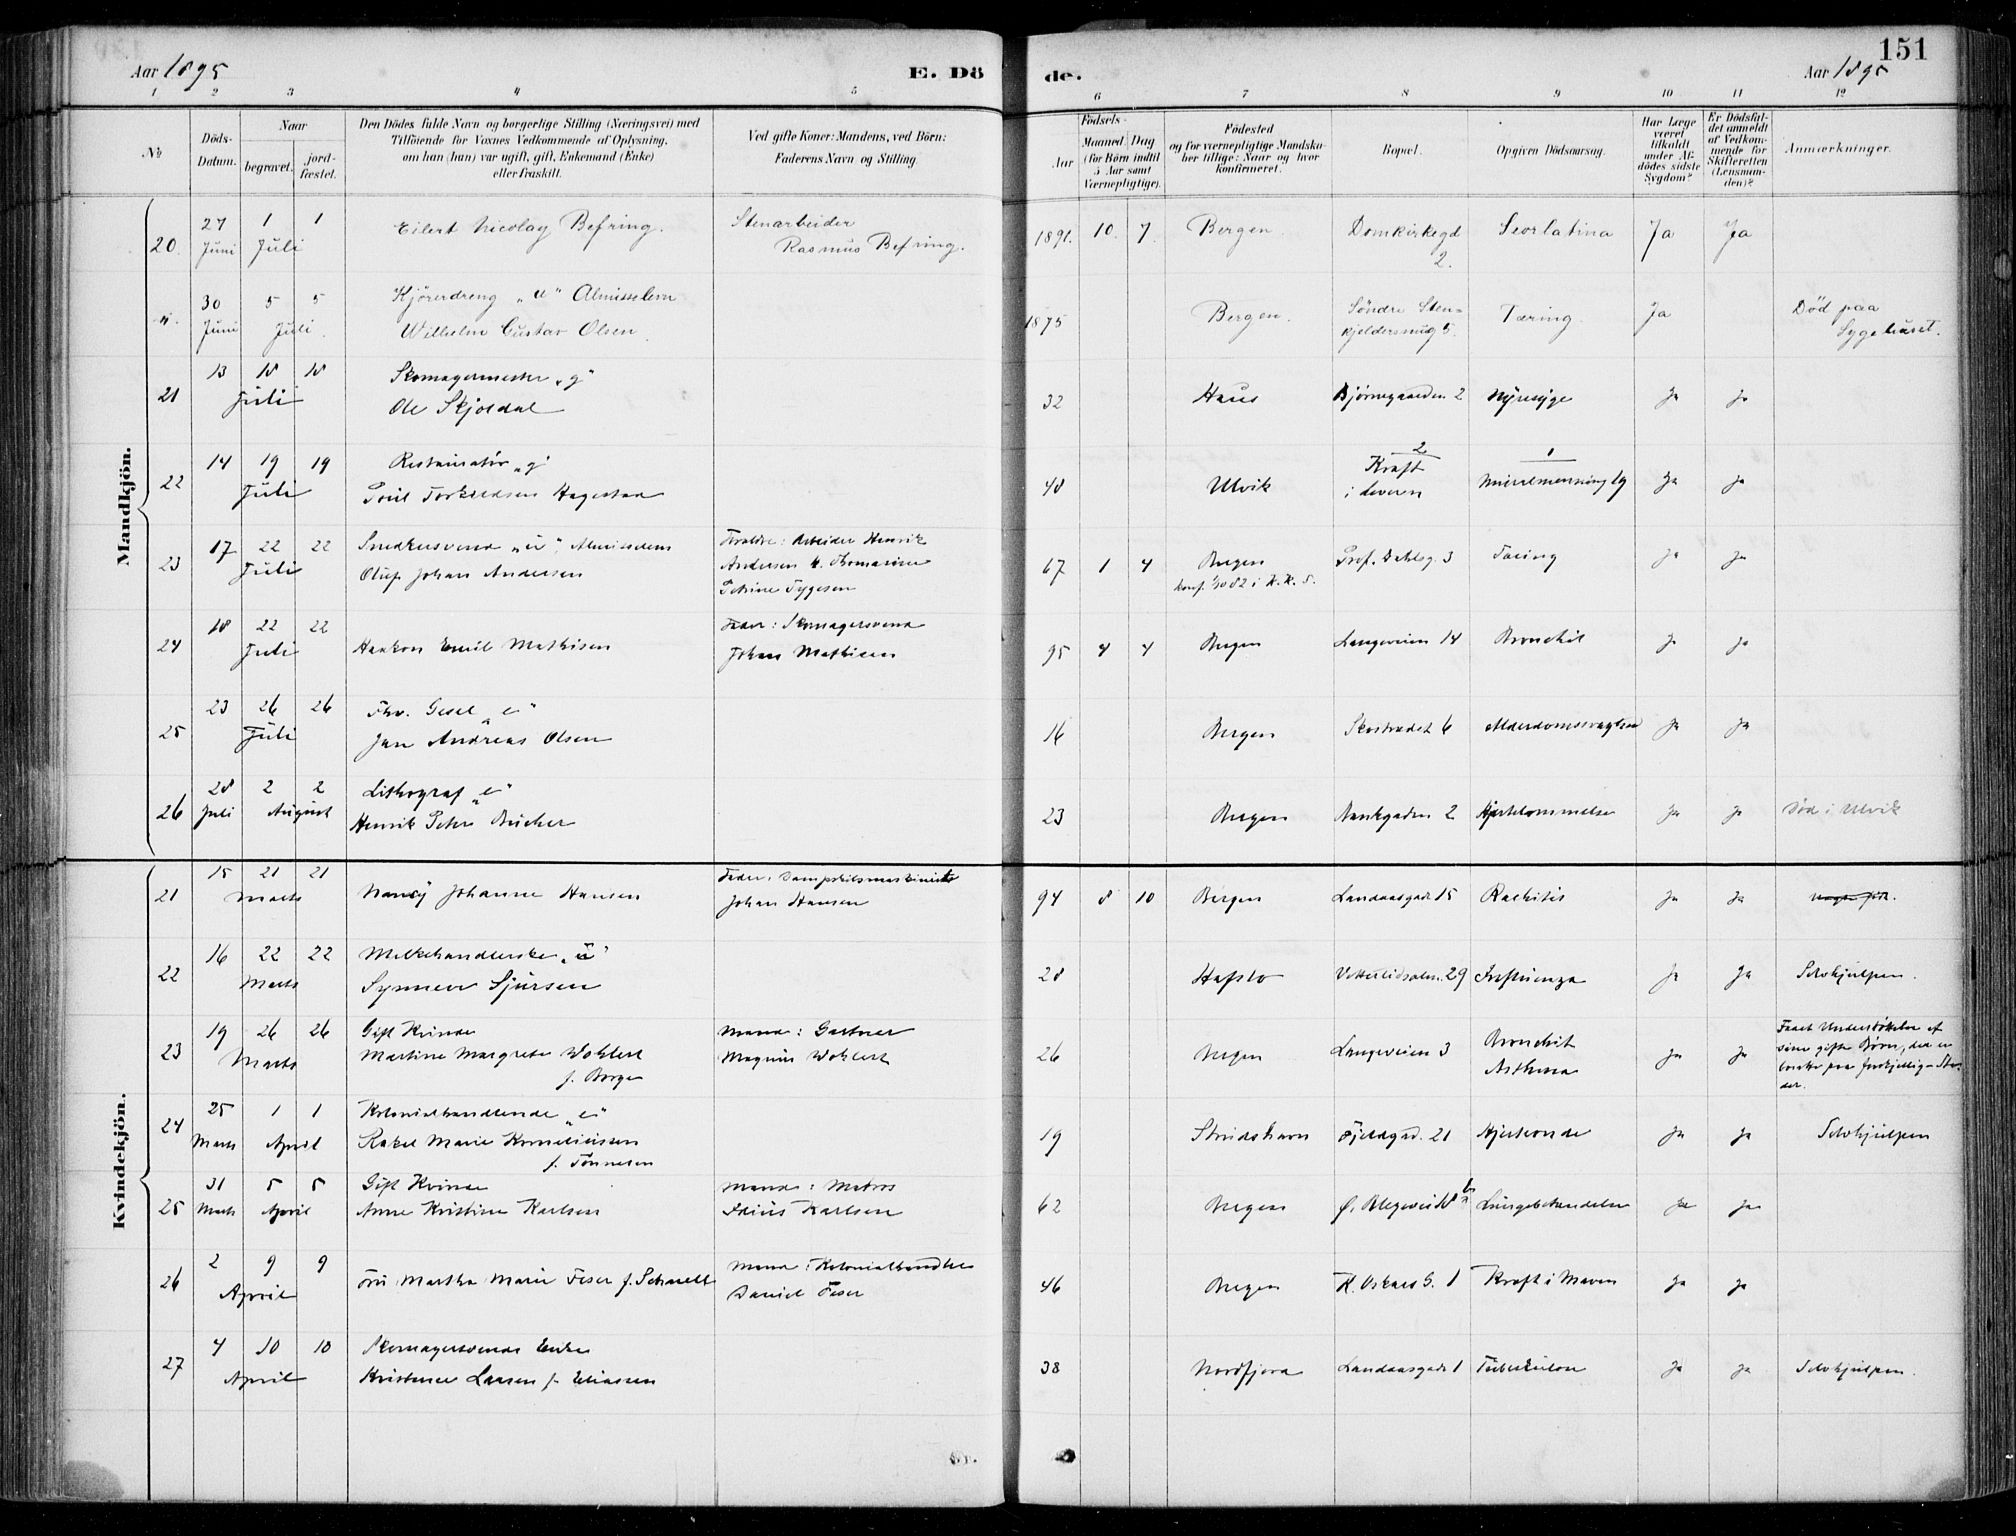 151
Aar 1895
E. Dö
de.
Aar 1895
1 2 3 4 5 6 7 8 9 10 11 12
No
Döds-Datum.
Naar
begravet.
jord-fæstet.
Den Dödes fulde Navn og borgerlige Stilling (Næringsvei) med
Tilföiende for Voxnes Vedkommende af Oplysning,
om han (hun) var ugift, gift, Enkemand (Enke)
eller fraskilt.
Ved gifte Koner: Mandens, ved Börn:
Faderens Navn og Stilling.
Födsels-
Aar
Maaned
Dag
(for Börn indtil
5 Aar samt
Værnepligtige).
Födested
og for værnepligtige Mandska-
ber tillige: Naar og hvor
konfirmeret.
Bopæl.
Opgiven Dödsaarsag.
Har Læge
været
tilkaldt
under Af-
dödes sidste
Sygdom?
Er Dödsfal-
det anmeldt
af Vedkom-
mende for
Skifteretten
(Lensman-
den)?
Anmærkninger.
Mandkjön.
20. 27 Juni 1 1 Juli Eilert Nicolay Befring. Stenarbeider
Rasmus Befring. 1891. 10. 7. Bergen. Domkirkegd
2. Ja Ja
30 Juni 5 5 Juli Kjörerdreng "u"
Wilhelm Gustav Olsen. 1875 Bergen. Søndre Sten-
kjeldersmug 5. Tæring. Ja Död paa
Sygehuset.
21 13 18 18 Juli Skomagermester "g"
Ole Skjoldal 32 Haus Bjørnegaarden 2 Nyresyge Ja Ja
22 14 19 19 Juli Restauratør "g"
Hagestad 48 Ulvik Kraft
i Leveren 2 1 Ja Ja
23 17 22 22 Juli Snedkersvend "u",
Oluf Johan Andersen Forældre: Arbeider Henrik
Andersen
Petrine Tygesen 67 1 4 Bergen
Prof. Dahlsg. 3 Tæring Ja Ja
24 18 22 22 Juli Haakon Emil Mathisen Fader: Skomagersvend
Johan Mathisen 95 4 4 Bergen Langeveien 14 Bronchit Ja Ja
25 23 26 26 Juli "e"
Jan Andreas Olsen 16 Bergen Skostrædet 6 Alderdomssvaghed Ja Ja
26 28 Juli 2 2 August Lithograf "e"
Henrik Peter Bücher 23 Bergen Bankgaden 2 Hjertelammelse Ja Ja Död i Ulvik
Kvindekjön.
21 15 21 21 Marts Nancy Johanne Hansen Fader: Dampskibsmaskinist
Johan Hansen 94 8 10 Bergen Landaasgad. 15 Rachitis Ja Ja
22 16 22 22 Marts Melkehandlerske "u"
Synneve Sjursen 28 Hafslo Vetterlidsalm. 29 Influenza Ja Ja Selvhjulpen.
23 19 26 26 Marts Gift Kvinde
Martine Margrete Wohlert
f. Borge Mand: Gartner
Magnus Wohlert 26 Bergen Langeveien 3 Bronchit
Asthma Ja Ja Faaet Understøttelse af
sine gifte Børn, der er
bosatte paa forskjellige Ste-
der.
24 25 Marts 1 1 April Kolonialhandlende "e"
Rakel Marie Korneliussen
f. Tønnesen 19 Strudshavn Fjeldgad. 21 Hjerteonde Ja Ja Selvhjulpen
25 31 Marts 5 5 April Gift Kvinde
Anne Kristine Karlsen Mand: Matros
Karlsen 62 Bergen Ø. Blegevei Lungebetændelse Ja Ja
26 2 9 9 April Fru Martha Marie Feser f. Schnell Mand: Kolonialhandler
Daniel Feser 46 Bergen K. Oskars G. 1 Kræft i Maven Ja Ja
27 4 10 10 April Skomagersvends Enke
Kristence Larsen f. Eliassen 38 Nordfjord Landaasgade 1 Tuberkulose Ja Ja Selvhjulpen.